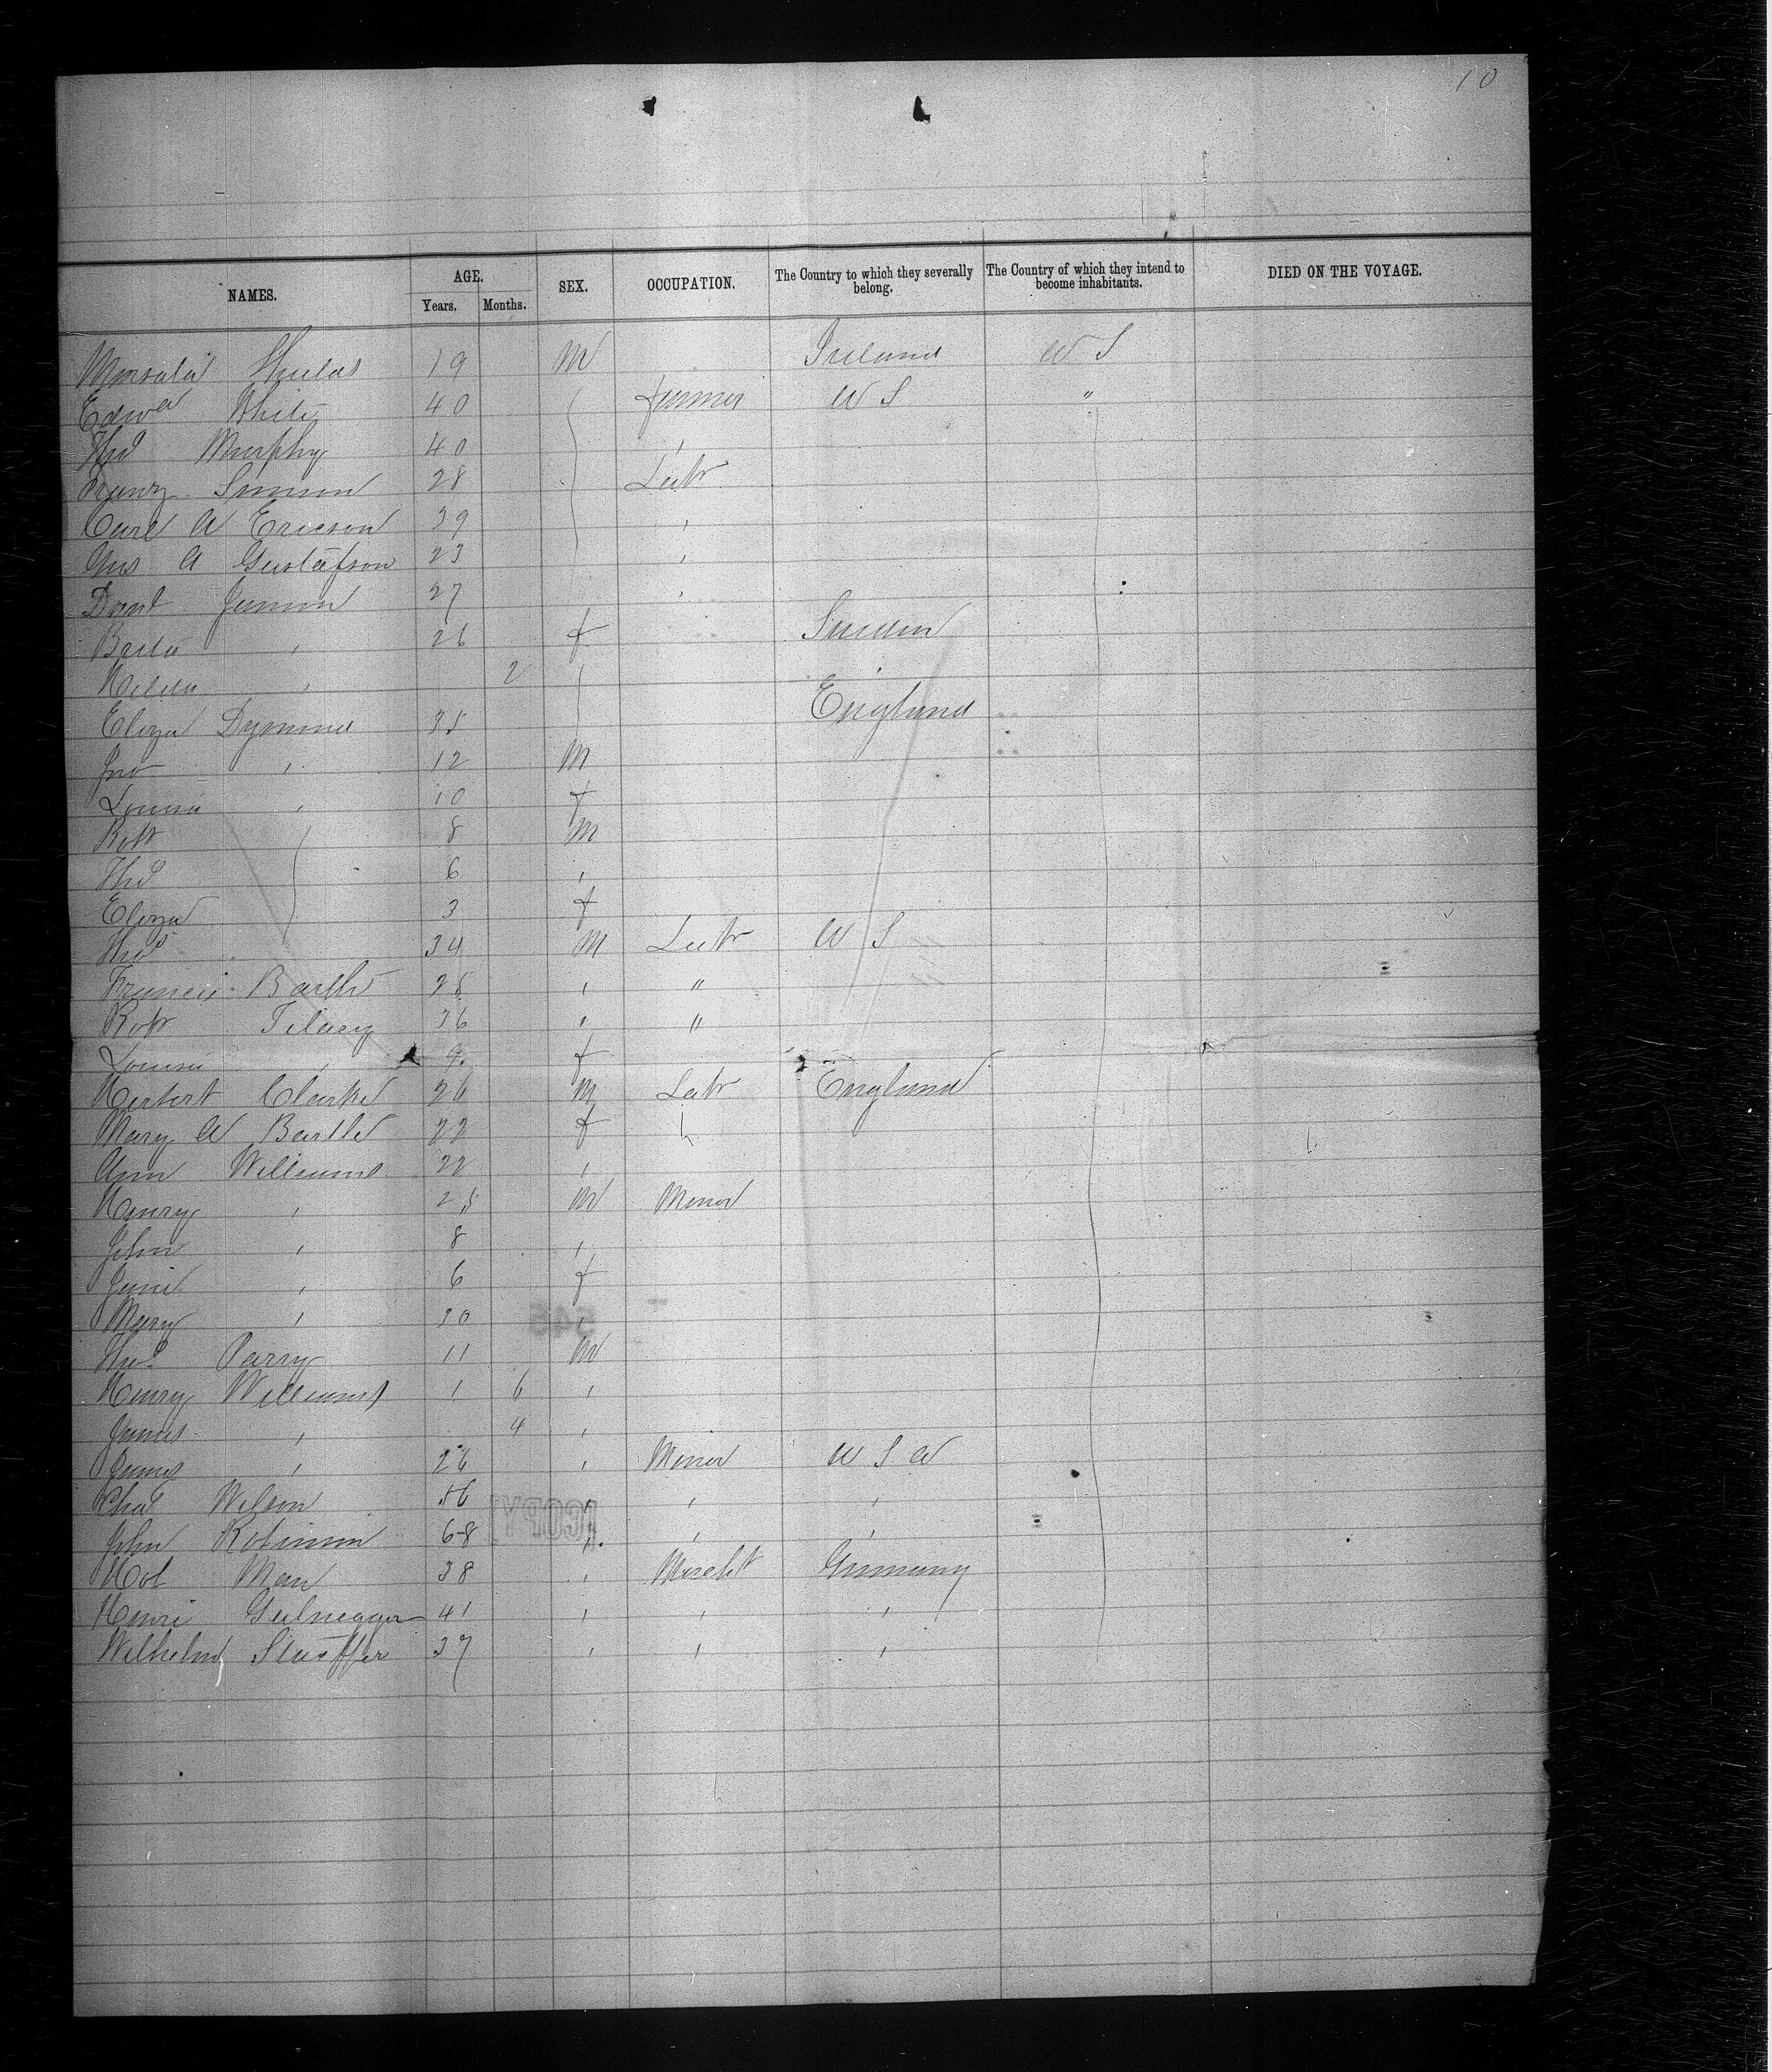 10
NAMES. AGE. Years. Months. SEX. OCCUPATION. The Country to which they severally belong. The Country of which they intend to become inhabitants. DIED ON THE VOYAGE.
19 M Ireland U S
Edwd White 40 farmer U S "
Thos Murphy 40 '
Franz Simson 28 Labr
Carl A Ericson 29 '
Gus A Gustafson 23 '
27 '
' 26 f Sweden
Hilda ' 2
Eliza Dymond 35 England
Jno ' 12 M
Louisa ' 10 f
Robt 8 M
Thos 6 '
Eliza 3 f
Thos 34 M Labr U S
Francis 25 ' "
Robt 36 ' "
Louisa ' 9 f
Herbert Clarke 26 M Labr England
Mary A 22 f
Ann Williams 22 '
Henry ' 25 M Miner
John ' 8 '
Jane ' 6 f
Mary ' 30 '
545
Thos Parry 11 M
Henry Williams 1 6 '
James ' 4 '
James ' 26 ' Miner U S A
Chas Wilson 56 ' ' '
COPY
John Robinson 68 ' ' '
38 ' Mercht Germany
Henri 41 ' ' '
Wilhelm 37 ' ' '